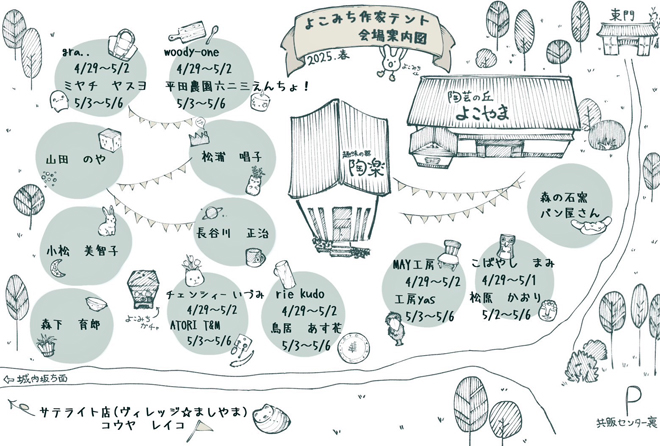 よこみち作家テント
会場案内図
2025.春
よこみちくん
東門
gra..
4/29〜5/2
ミヤチ ヤスヨ
5/3〜5/6
woody-one
4/29〜5/2
平田農園六二三えんちょ!
5/3〜5/6
陶芸の丘
よこやま
山田 のや
松浦 唱子
趣味の器
陶楽
森の石窯
パン屋さん
小松 美智子
長谷川 正治
MAY工房
4/29〜5/2
工房yas
5/3〜5/6
こばやし まみ
4/29〜5/1
松原 かおり
5/2〜5/6
森下 育郎
よこみち
ガチャ
チェンシィー いづみ
4/29〜5/2
ATORI T&M
5/3〜5/6
rie kudo
4/29〜5/2
鳥居 あす花
5/3〜5/6
城内坂方面
サテライト店(ヴィレッジ☆ましやま)
コウヤ レイコ
P
共販センター裏